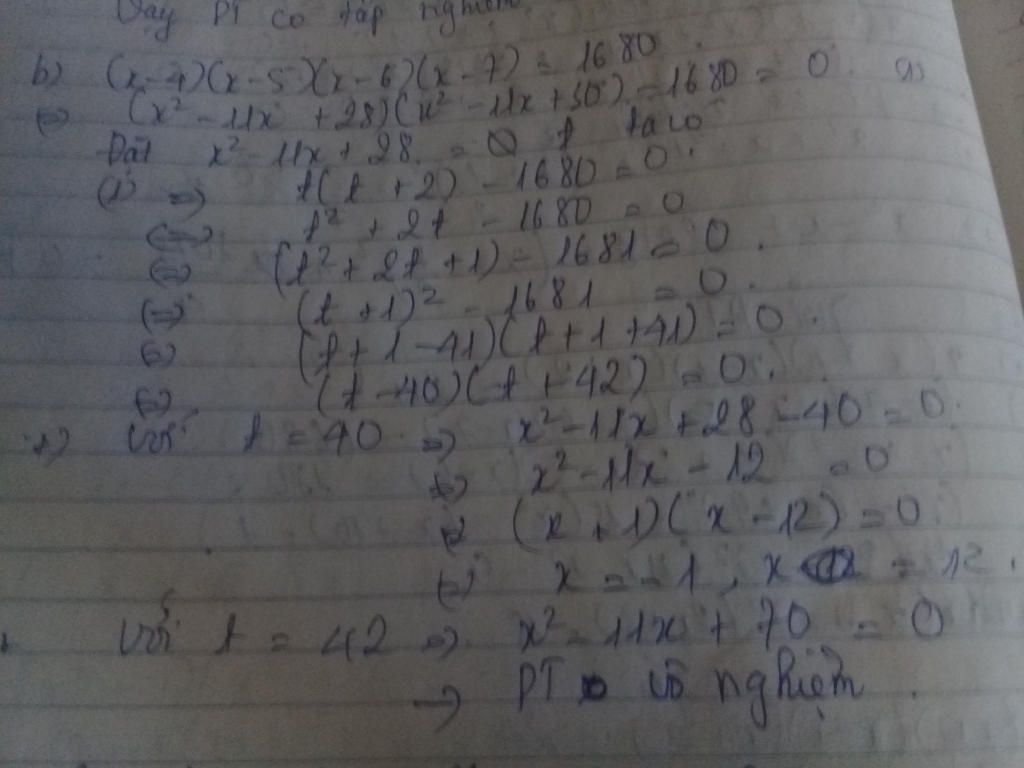 Vậy PT có tập nghiệm
b) (x-4)(x-5)(x-6)(x-7) = 1680.
(=) (x² - 11x + 28)(x² - 11x + 30) - 1680 = 0. (1)
Đặt x² - 11x + 28 = t ta có
(1) => t(t + 2) - 1680 = 0.
(=) t² + 2t - 1680 = 0
(=) (t² + 2t + 1) - 1681 = 0.
(=) (t + 1)² - 1681 = 0.
(=) (t + 1 - 41)(t + 1 + 41) = 0.
(=) (t - 40)(t + 42) = 0.
Với t = 40 => x² - 11x + 28 - 40 = 0.
(=) x² - 11x - 12 = 0
(=) (x + 1)(x - 12) = 0
(=) x = -1, x = 12.
Với t = 42 => x² - 11x + 70 = 0
→ PT vô nghiệm.